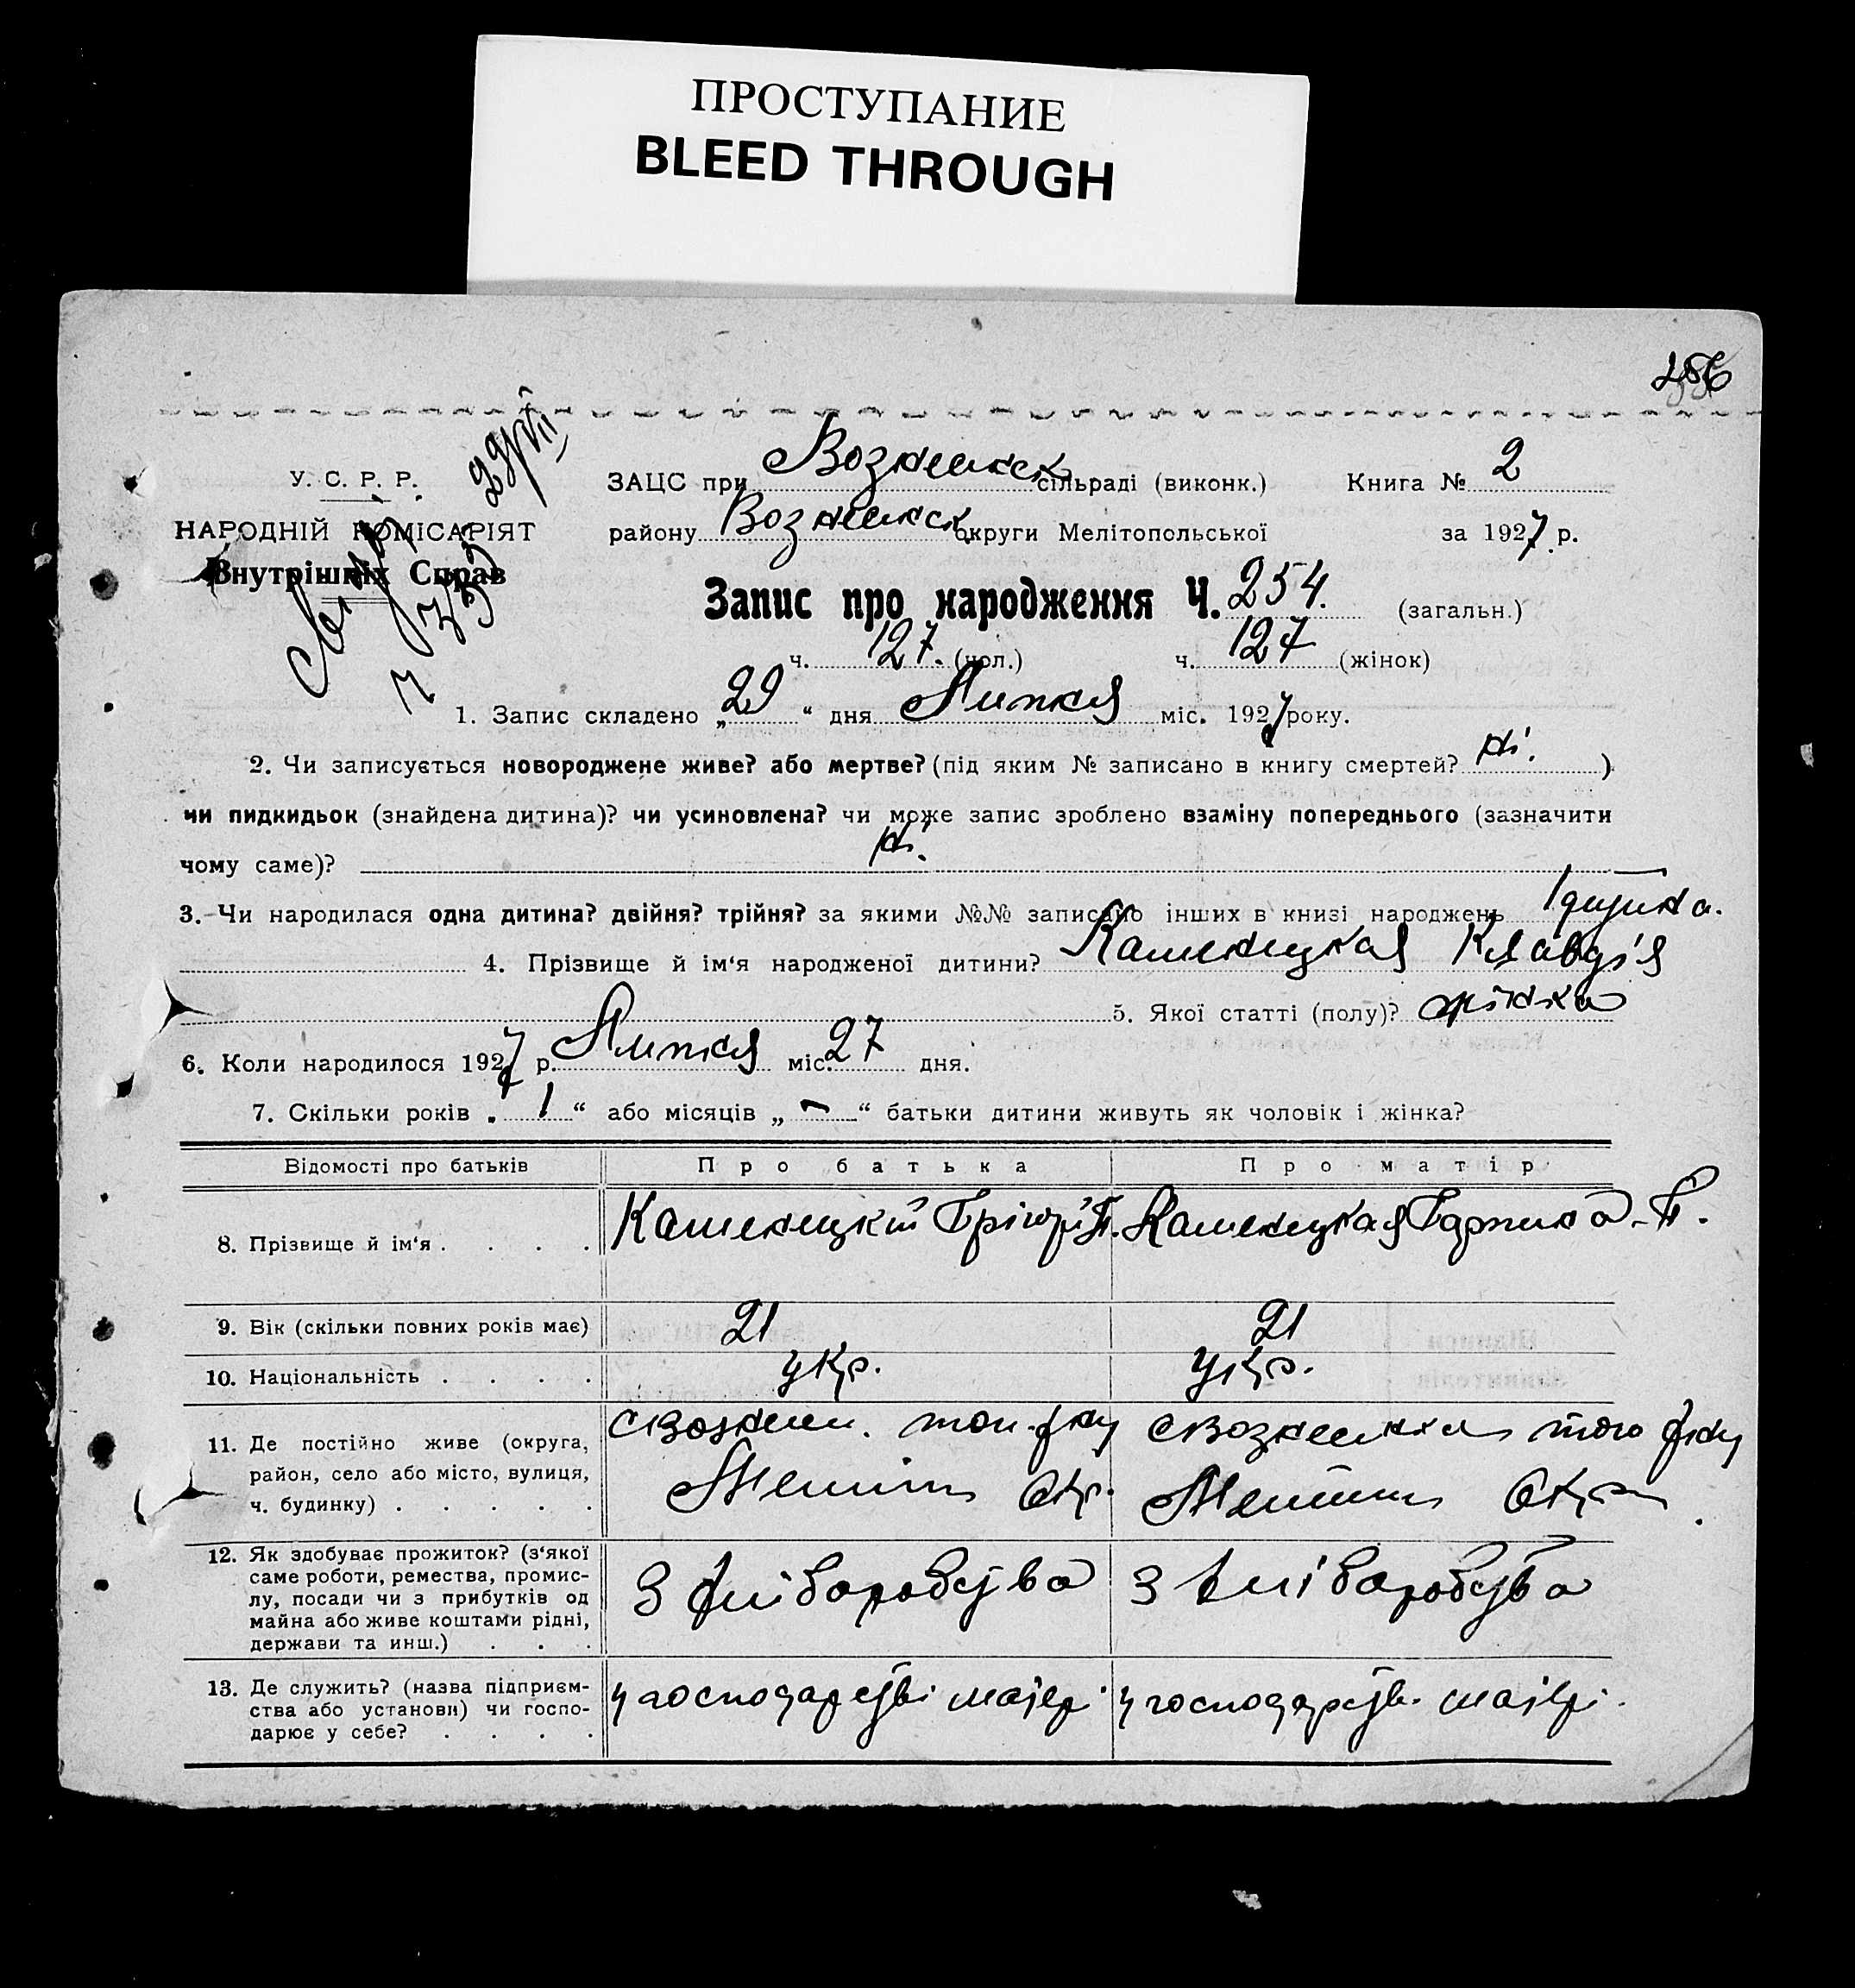 ПРОСТУПАНИЕ
BLEED THROUGH
256
У. С. Р. Р.
НАРОДНІЙ КОМІСАРІЯТ
Внутрішніх Справ
29/VII
ЗАЦС при Вознесенск сільраді (виконк.) Книга № 2
району Вознесенск округи Мелітопольської за 1927 р.
Запис про народження Ч. 254. (загальн.)
ч. 127. (чол.) ч. 127 (жінок)
1. Запис складено „29“ дня Липня міс. 1927 року.
2. Чи записується новороджене живе? або мертве? (під яким № записано в книгу смертей? ні.)
чи пидкидьок (знайдена дитина)? чи усиновлена? чи може запис зроблено взаміну попереднього (зазначити
чому саме)? ні.
3. Чи народилася одна дитина? двійня? трійня? за якими №№ записано інших в книзі народжень 1 дитина.
4. Прізвище й ім‘я народженої дитини? Каменицкая Клавдія
5. Якої статті (полу)? жінка
6. Коли народилося 1927 р. Липня міс. 27 дня.
7. Скільки років „1“ або місяців „-“ батьки дитини живуть як чоловік і жінка?
Відомості про батьків Про батька Про матір
8. Прізвище й ім‘я . . . . Каменицкий Грігор. П. Каменицкая П.
9. Вік (скільки повних років має) 21 21
10. Національність . . . . укр. укр.
11. Де постійно живе (округа,
район, село або місто, вулиця,
ч. будинку) . . . . .
с Вознесен. того р-ну с Вознесенка того р-ну
Меліт Окр. Меліт Окр
12. Як здобуває прожиток? (з‘якої
саме роботи, ремества, промис-
лу, посади чи з прибутків од
майна або живе коштами рідні,
держави та инш.) . . .
З хліборобства З хліборобства
13. Де служить? (назва підприєм-
ства або установи) чи госпо-
дарює у себе? . . . .
у господарстві матері у господарстві матері.